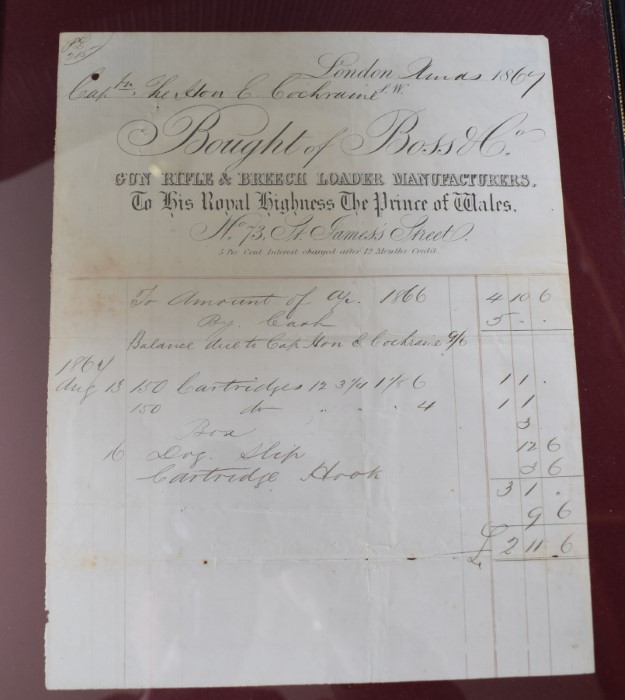 London Xmas 1867
Captn. The Hon E Cochraine
Bought of Boss & Co.
GUN RIFLE & BREECH LOADER MANUFACTURERS,
To His Royal Highness The Prince of Wales,
No. 73, St. James's Street.
5 Per Cent Interest charged after 12 Months Credit.
To Amount of a/c 1866 4 10 6
By Cash 5 - -
Balance due to Cap Hon E Cochraine 9/6
1867
Aug 13 150 Cartridges 12 3 1/4 1 1/8 6 1 1 .
150 do " " " 4 1 1
Box 3
16 Dog Slip 12 6
Cartridge Hook 3 6
3 1 .
9 6
£ 2 11 6